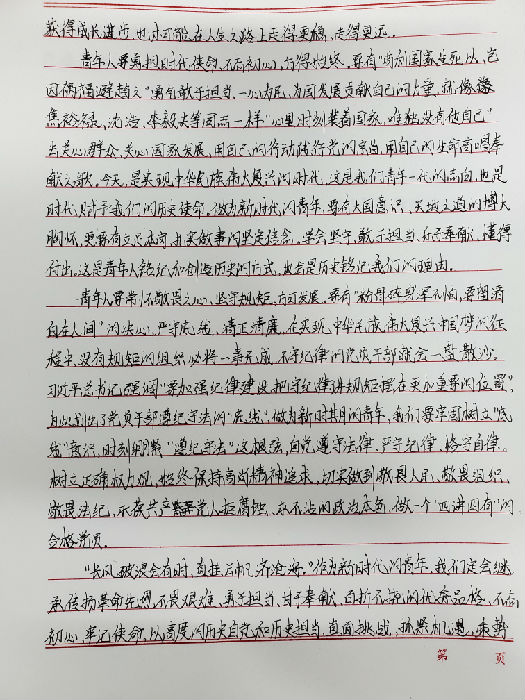 获得成长进步，也才可能在人生之路上走得更稳，走得更远。
青年人要勇担时代使命，不忘初心，行得始终。要有“苟利国家生死以，岂
因祸福避趋之”勇气敢于担当，一心为民，为国发展贡献自己的力量，就像像
焦裕禄、沈浩、李毅夫等同志一样“心里时刻装着国家，唯独没有他自己”
去关心群众，关心国家发展，用自己的行动践行党的宗旨，用自己的生命高唱奉
献之歌。今天，是实现中华民族伟大复兴的时代，这是我们青年一代的志向，也是
时代赋予我们的历史使命。做为新时代的青年，要有大国意识，天地之道的博大
胸怀，更要有立足本向，扎实做事的坚定信念，学会坚守，敢于担当，乐于奉献，懂得
付出。这是青年人铭记和创造历史的方式，也会是历史铭记我们的理由。
青年人要常怀敬畏之心，坚守规矩，方可发展。要有“粉骨碎身浑不怕，要留清
白在人间”的决心，严守底线，清正清廉。在实现中华民族伟大复兴中国梦的征
程中，没有规矩的组织必将一事无成，不守纪律的党员干部就会一盘散沙。
习近平总书记强调“要加强纪律建设，把守纪律讲规矩摆在更加重要的位置”
自此划出了党员干部遵纪守法的“底线”。做为新时期的青年，我们要牢固树立“底
线”意识，时刻绷紧“遵纪守法”这根弦，自觉遵守法律，严守纪律，恪守自律。
树立正确权力观，始终保持高尚精神追求，切实做到敬畏人民、敬畏组织、
敬畏法纪，永葆共产党人拒腐蚀、永不沾的政治本色，做一个“四讲四有”的
合格党员。
“长风破浪会有时，直挂云帆济沧海。”作为新时代的青年，我们定会继
承传扬革命先烈不畏艰难、勇于担当、甘于奉献、百折不挠的优秀品格，不忘
初心，牢记使命，以高度的历史自觉和历史担当，直面挑战，抓紧机遇，乘势
第 页